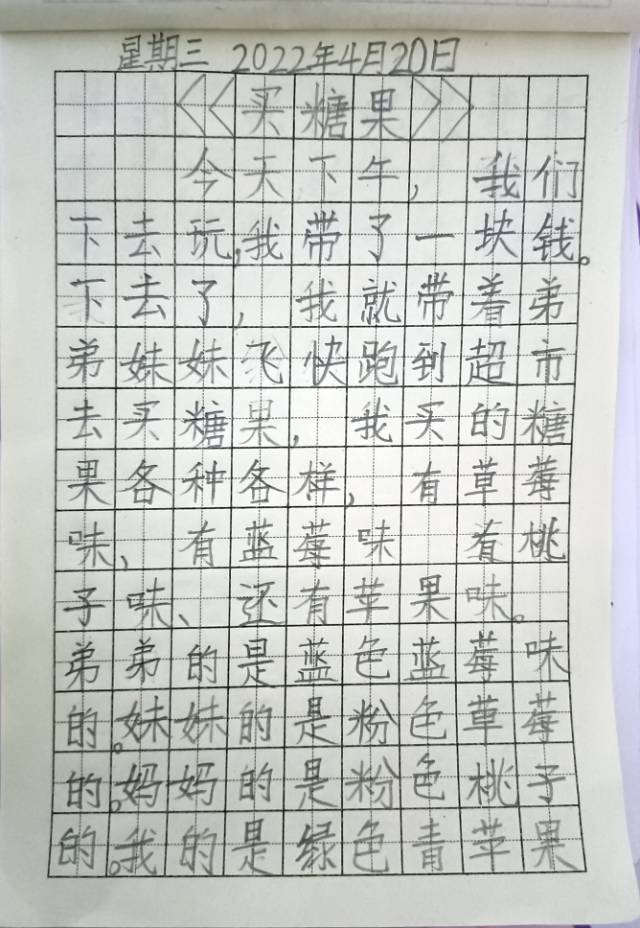 星期三 2022年4月20日
《买糖果》
今天下午，我们
下去玩,我带了一块钱。
下去了，我就带着弟
弟妹妹飞快跑到超市
去买糖果，我买的糖
果各种各样，有草莓
味、有蓝莓味 有桃
子味、还有苹果味。
弟弟的是蓝色蓝莓味
的。妹妹的是粉色草莓
的。妈妈的是粉色桃子
的。我的是绿色青苹果